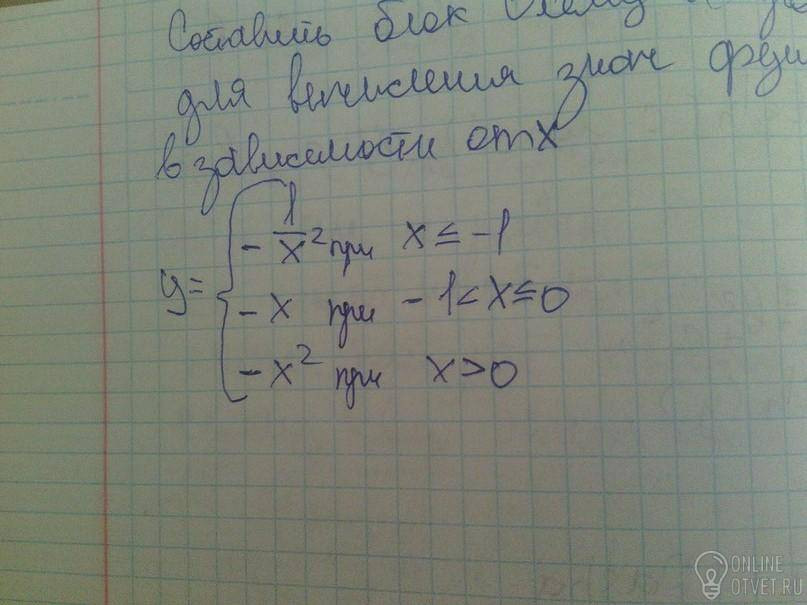 Составить блок схему
для вычисления знач
в зависимости от x
y=
- 1/x² при x ≤ -1
- x при -1 < x ≤ 0
- x² при x > 0
ONLINE
OTVET.RU